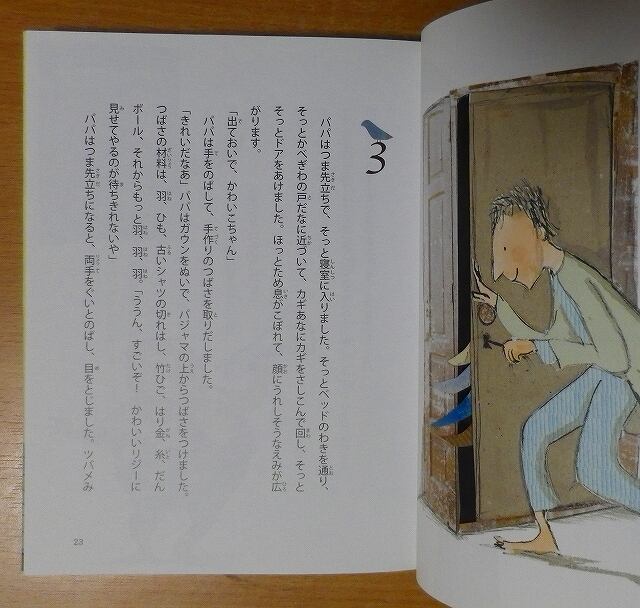 3
パパはつま先立ちで、そっと寝室に入りました。そっとベッドのわきを通り、
そっとかべぎわの戸だなに近づいて、カギあなにカギをさしこんで回し、そっと
そっとドアをあけました。ほっとため息がこぼれて、顔にうれしそうなえみが広
がります。
「出ておいで、かわいこちゃん」
パパは手をのばして、手作りのつばさを取りだしました。
「きれいだなあ」パパはガウンをぬいで、パジャマの上からつばさをつけました。
つばさの材料は、羽、ひも、古いシャツの切れはし、竹ひご、はり金、糸、だん
ボール、それからもっと羽、羽、羽。「ううん、すごいぞ！　かわいいリジーに
見せてやるのが待ちきれないや」
パパはつま先立ちになると、両手をぐいとのばし、目をとじました。ツバメみ
23